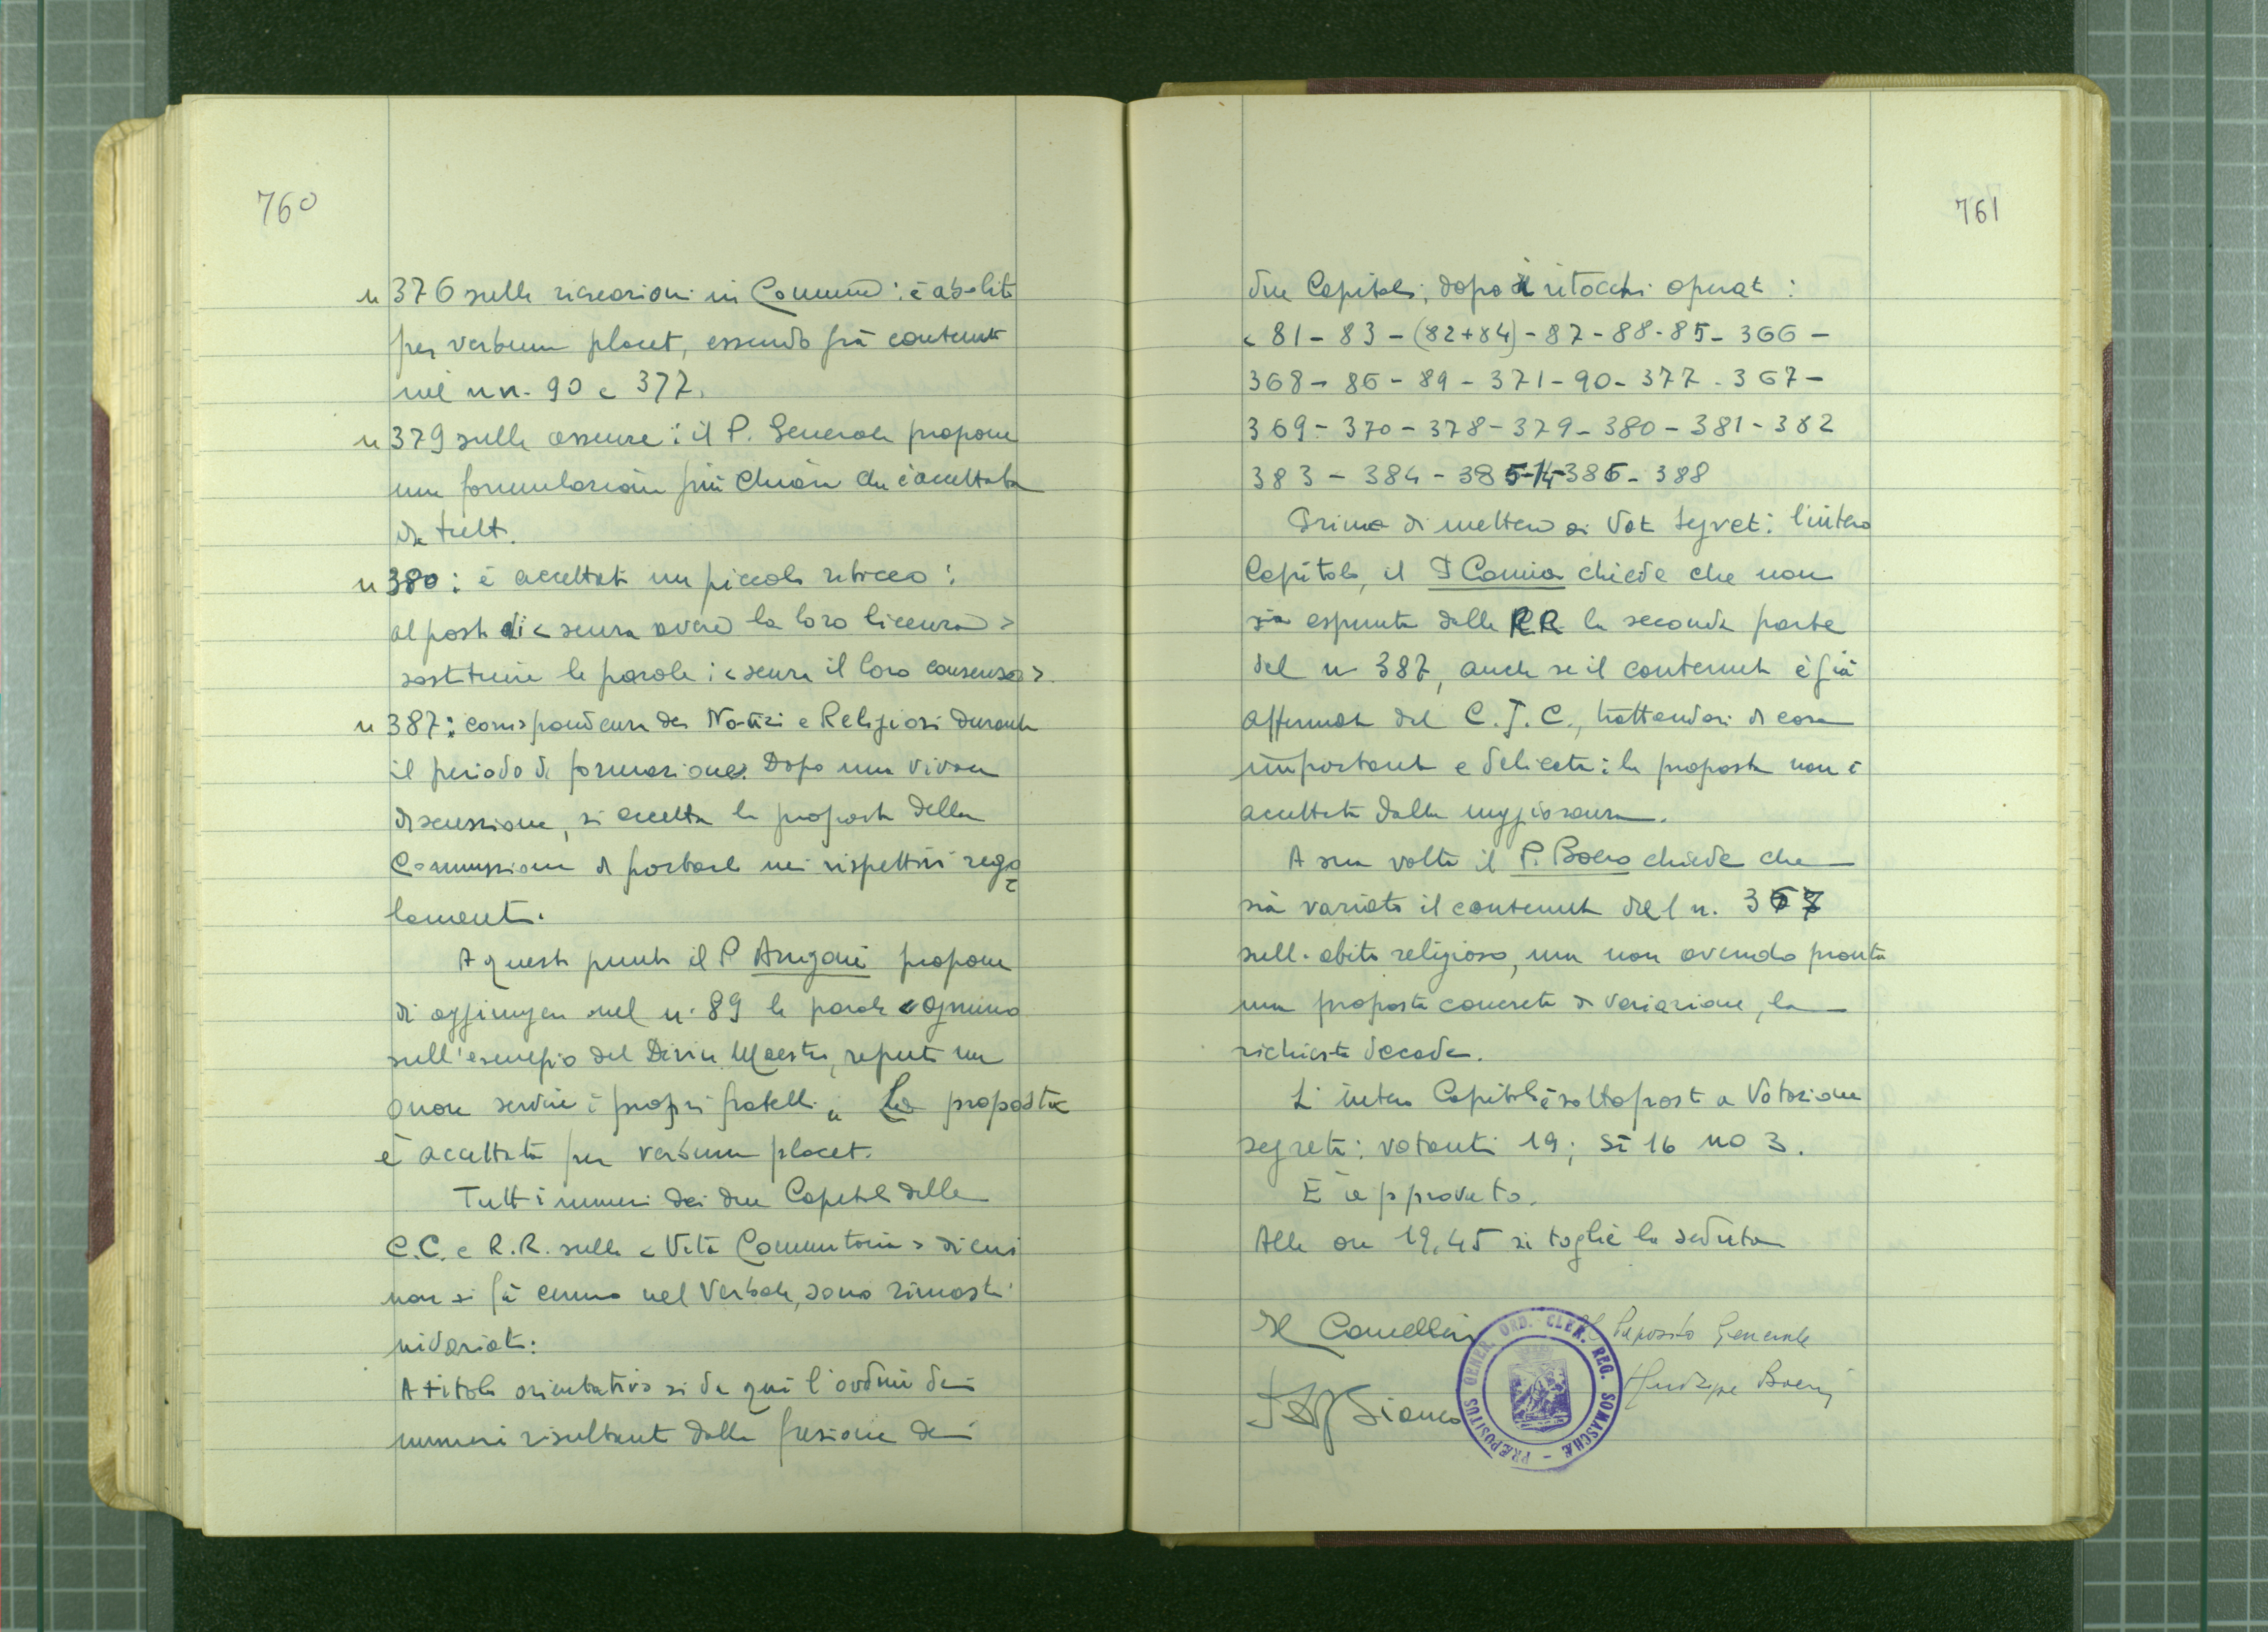 760
n 376 sulle ricreazioni in Comune: è abolito
per verbum placet, essendo già contenuto
nei nn. 90 e 377.
n 379 sulle assenze: il P. Generale propone
una formulazione più chiara che è accettata
da tutti.
n 380: è accettato un piccolo ritocco:
al posto di < senza avere la loro licenza >
sostituire le parole: < senza il loro consenso >.
n 387: corrispondenza dei Novizi e Religiosi durante
il periodo di formazione. Dopo una vivace
discussione, si accetta la proposta della
Commissione di portarlo nei rispettivi rego
lamenti.
A questo punto il P Arrigoni propone
di aggiungere nel n. 89 le parole « Ognuno
sull'esempio del Divin Maestro, reputi un
onore servire i propri fratelli ». La proposta
è accettata per verbum placet.
Tutti i numeri dei due Capitoli delle
C.C. e R.R. sulla < Vita Comunitaria > di cui
non si fa cenno nel Verbale, sono rimasti
invariati:
A titolo orientativo si dà qui l'ordine dei
numeri risultanti dalla fusione dei
761
due Capitoli, dopo i ritocchi operati:
< 81 - 83 - (82+84) - 87 - 88 - 85 - 366 -
368 - 86 - 89 - 371 - 90 - 377 - 367 -
369 - 370 - 378 - 379 - 380 - 381 - 382
383 - 384 - 385 - 14 - 386 - 388
Prima di mettere ai Voti segreti l'intero
Capitolo, il P Camia chiede che non
sia espunta dalle RR la seconda parte
del n 387, anche se il contenuto è già
affermato dal C.J.C., trattandosi di cosa
importante e delicata: la proposta non è
accettata dalla maggioranza.
A sua volta il P. Boero chiede che
sia variato il contenuto del n. 367
sull'abito religioso, ma non avendo pronta
una proposta concreta di variazione, la
richiesta decade.
L'intero Capitolo è sottoposto a Votazione
segreta: votanti 19; sì 16 no 3.
È approvato.
Alle ore 19,45 si toglie la seduta
Il Cancelliere
Il Preposito Generale
Giuseppe Boeris
Bianco
PRÆPOSITUS GENER. ORD. CLER. REG. SOMASCHÆ